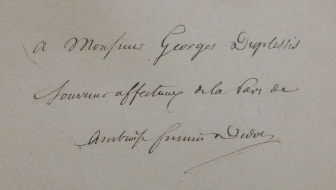 A Monsieur Georges Duplessis
Souvenir affectueux de la part de
Ambroise Firmin Didot